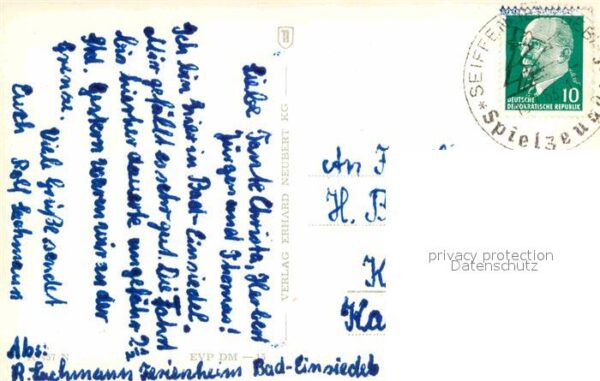 Liebe Tante Christa, Herbert
Jürgen und Thomas!
Ich bin hier in Bad-Einsiedel.
Mir gefällt es sehr gut. Die Fahrt
bis hierher dauerte ungefähr 2½
Std. Gestern waren wir an der
Grenze. Viele Grüße sendet
Euch Rolf Lachmann
Abs:
R. Lachmann Ferienheim Bad-Einsiedel
EVP DM
VERLAG ERHARD NEUBERT KG
An F
H. B
K
Ka
SEIFFEN
Spielzeug
10
DEUTSCHE
DEMOKRATISCHE REPUBLIK
privacy protection
Datenschutz